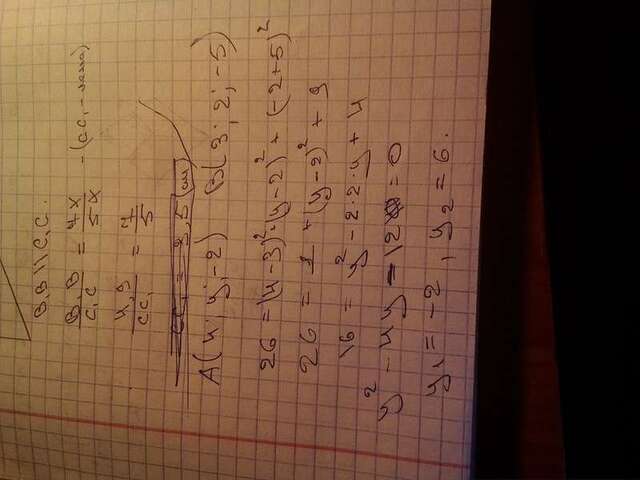 B₁B || C₁C.
B₁B / C₁C = 4x / 5x - (CC₁ -
4,9 / CC₁ = 4 / 5
A(4; y; -2) B(3; 2; -5)
26 = (4-3)² + (y-2)² + (-2+5)²
26 = 1 + (y-2)² + 9
16 = y² - 2·2·y + 4
y² - 4y - 12 = 0
y₁ = -2, y₂ = 6.